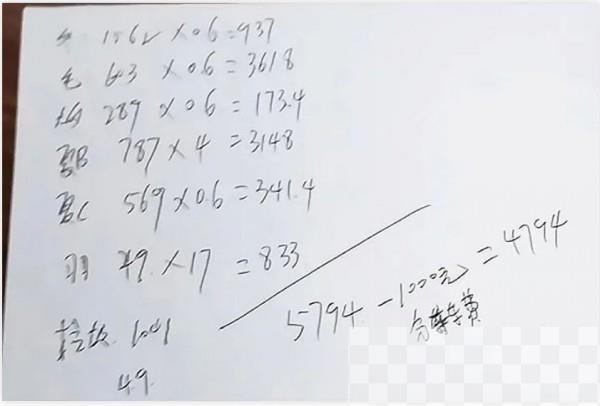 1562 × 0.6 = 937
毛 603 × 0.6 = 361.8
289 × 0.6 = 173.4
夏B 787 × 4 = 3148
夏C 569 × 0.6 = 341.4
羽 49 × 17 = 833
5794 - 1000元 = 4794
49